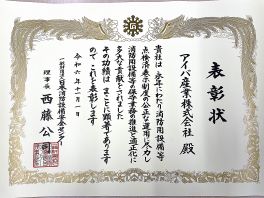 表彰状
アイバ産業株式会社 殿
貴社は永年にわたり消防用設備等
点検済表示制度の公正な運用に尽力し
消防用設備等の保守業務の推進と適正化に
多大な貢献をされました
その功績は まことに顕著であります
のでこれを表彰します
令和六年十一月一日
一般財団法人日本消防設備安全センター
理事長 西藤公司